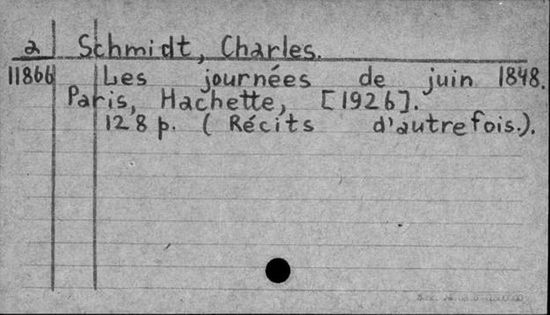 a Schmidt, Charles.
11866 Les journées de juin 1848.
Paris, Hachette, [1926].
128 p. (Récits d'autrefois.).